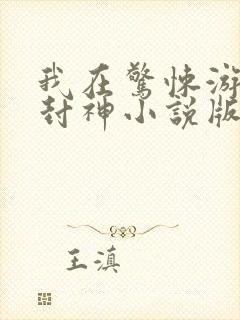 我在驚悚游
封神小説版
王滇